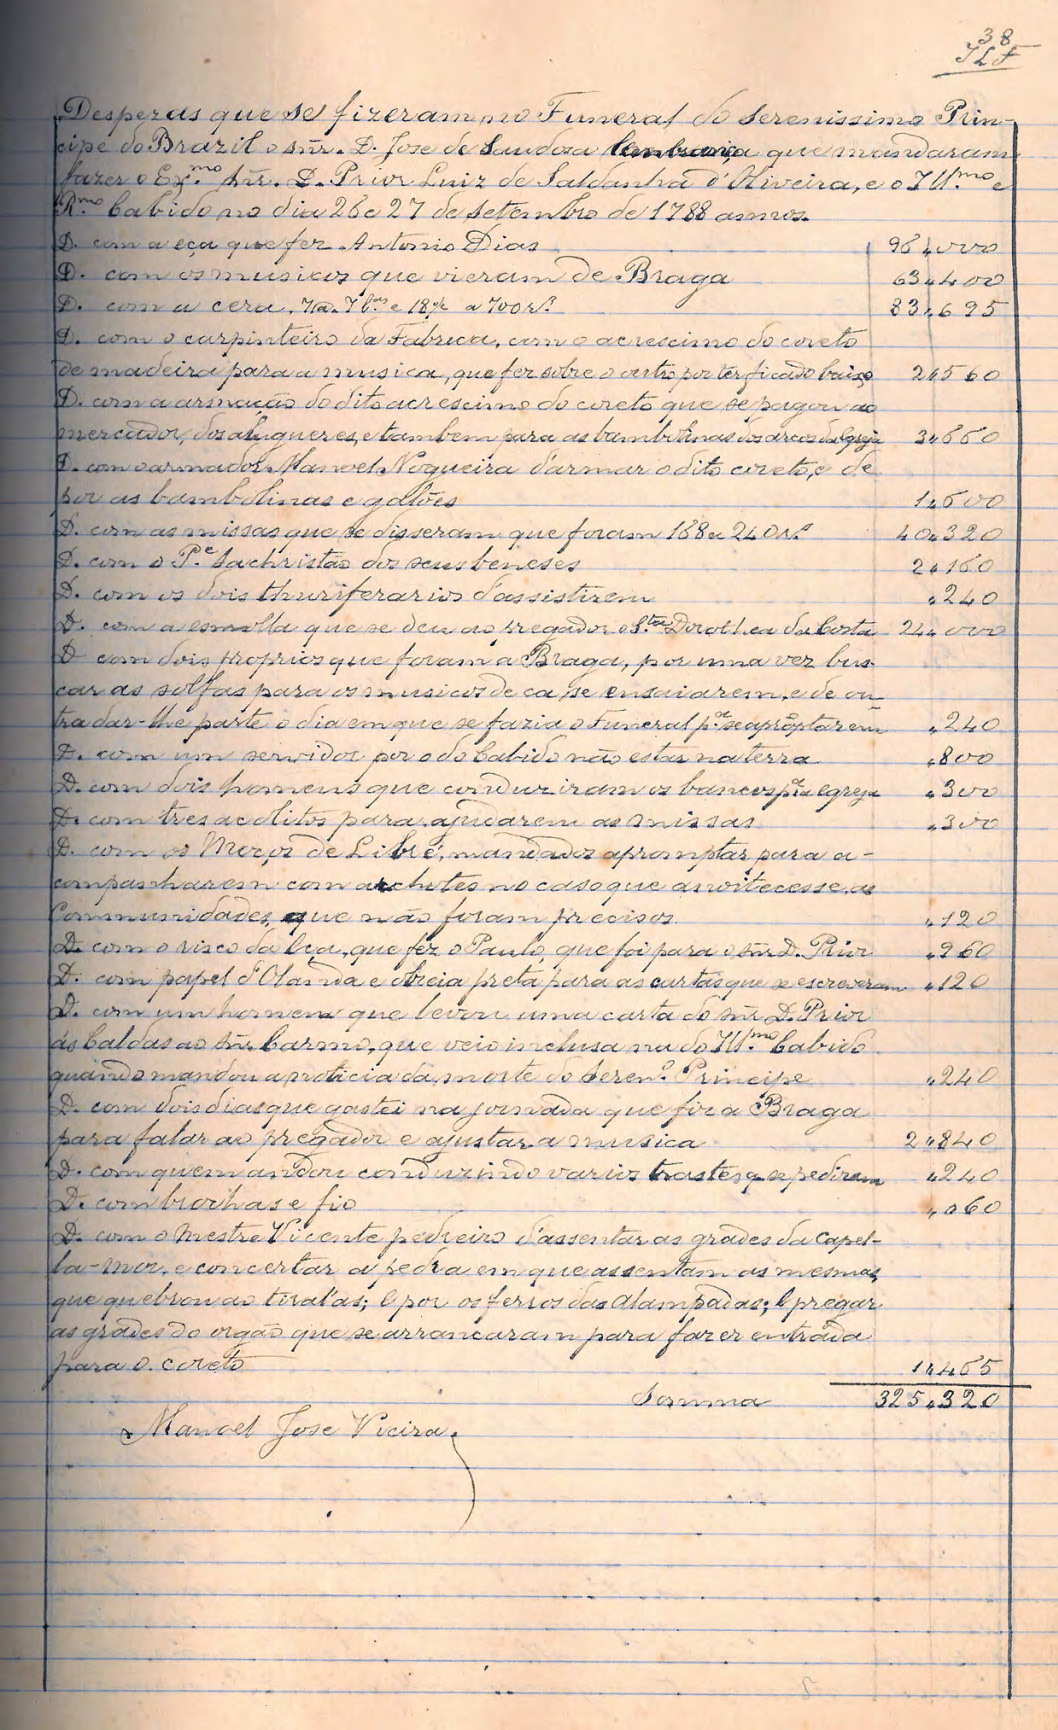 38
JLF
Despezas que se fizeram no Funeral do Serenissimo Prin-
cipe do Brazil o snr. D. Jose de Saudosa lembrança que mandaram
fazer o Ex.mo Snr. D. Prior Luiz de Saldanha d'Oliveira, e o Ill.mo e
R.mo Cabido no dia 26 e 27 de Setembro de 1788 annos.
D. com a eça que fez Antonio Dias 96,000
D. com os musicos que vieram de Braga 63,400
D. com a cera, 7 l.as e 18 a 700 r.s 83,695
D. com o carpinteiro da Fabrica, com o acrescimo do coreto
de madeira para a musica, que fez sobre o outro por ter ficado baixo 2,560
D. com a armação do dito acrescimo do coreto que se pagou ao
mercador, dos alugueres, e tambem para as bambolinas dos arcos da Igreja 3,660
D. com o armador Manoel Nogueira d'armar o dito coreto, e de
por as bambolinas e galões 1,600
D. com as missas que se disseram que foram 168 a 240 r.s 40,320
D. com o P.e Sachristão dos seus beneses 2,160
D. com os dois thuriferarios d'assistirem ,240
D. com a esmolla que se deu ao pregador o S.ta Dorothea da Costa 24,000
D com dois proprios que foram a Braga, por uma vez bus-
car as solfas para os musicos de ca, se ensaiarem, e de ou-
tra dar-lhe parte o dia em que se fazia o Funeral p.a se apromptarem ,240
D. com um servidor por o do Cabido não estar na terra ,800
D. com dois homens que conduziram os bancos p.a a egreja ,300
D. com tres acolitos para ajudarem as missas ,300
D. com os Moços de Libré, mandados apromptar para a-
companharem com archotes no caso que anoitecesse, as
Communidades, que não foram precisos ,120
D. com o risco da Eça, que fez o Paulo, que foi para o snr. D. Prior ,960
D. com papel d'Olanda e obreia preta para as cartas que se escreveram ,120
D. com um homem que levou uma carta do snr D. Prior
ás Caldas ao Snr. Carmo, que veio inclusa na do Ill.mo Cabido
quando mandou a noticia da morte do Seren.o Principe ,240
D. com dois dias que gastei na jornada que fiz a Braga
para falar ao pregador e ajustar a musica 2,840
D. com quem andou conduzindo varios trastes q. se pediram ,240
D. com brochas e fio ,060
D. com o Mestre Vicente pedreiro d'assentar as grades da Capel-
la-mor, e concertar a pedra em que assentam as mesmas,
que quebrou ao tiral'as; E por os ferros das Alampadas; E pregar
as grades do orgão que se arrancaram para fazer entrada
para o coreto 1,465
Somma 325,320
Manoel Jose Vieira.